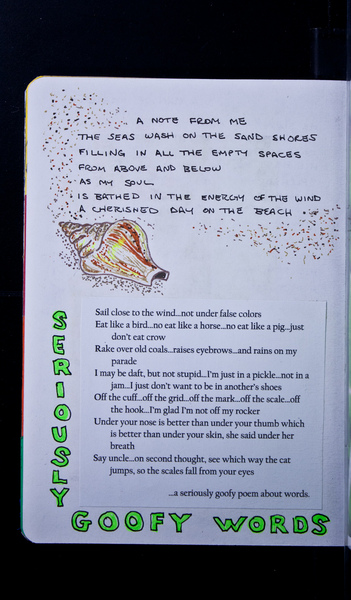 A NOTE FROM ME
THE SEAS WASH ON THE SAND SHORES
FILLING IN ALL THE EMPTY SPACES
FROM ABOVE AND BELOW
AS MY SOUL
IS BATHED IN THE ENERGY OF THE WIND
A CHERISHED DAY ON THE BEACH
Sail close to the wind...not under false colors
Eat like a bird...no eat like a horse...no eat like a pig...just
don't eat crow
Rake over old coals...raises eyebrows...and rains on my
parade
I may be daft, but not stupid...I'm just in a pickle...not in a
jam...I just don't want to be in another's shoes
Off the cuff...off the grid...off the mark...off the scale...off
the hook...I'm glad I'm not off my rocker
Under your nose is better than under your thumb which
is better than under your skin, she said under her
breath
Say uncle...on second thought, see which way the cat
jumps, so the scales fall from your eyes
...a seriously goofy poem about words.
SERIOUSLY
GOOFY WORDS